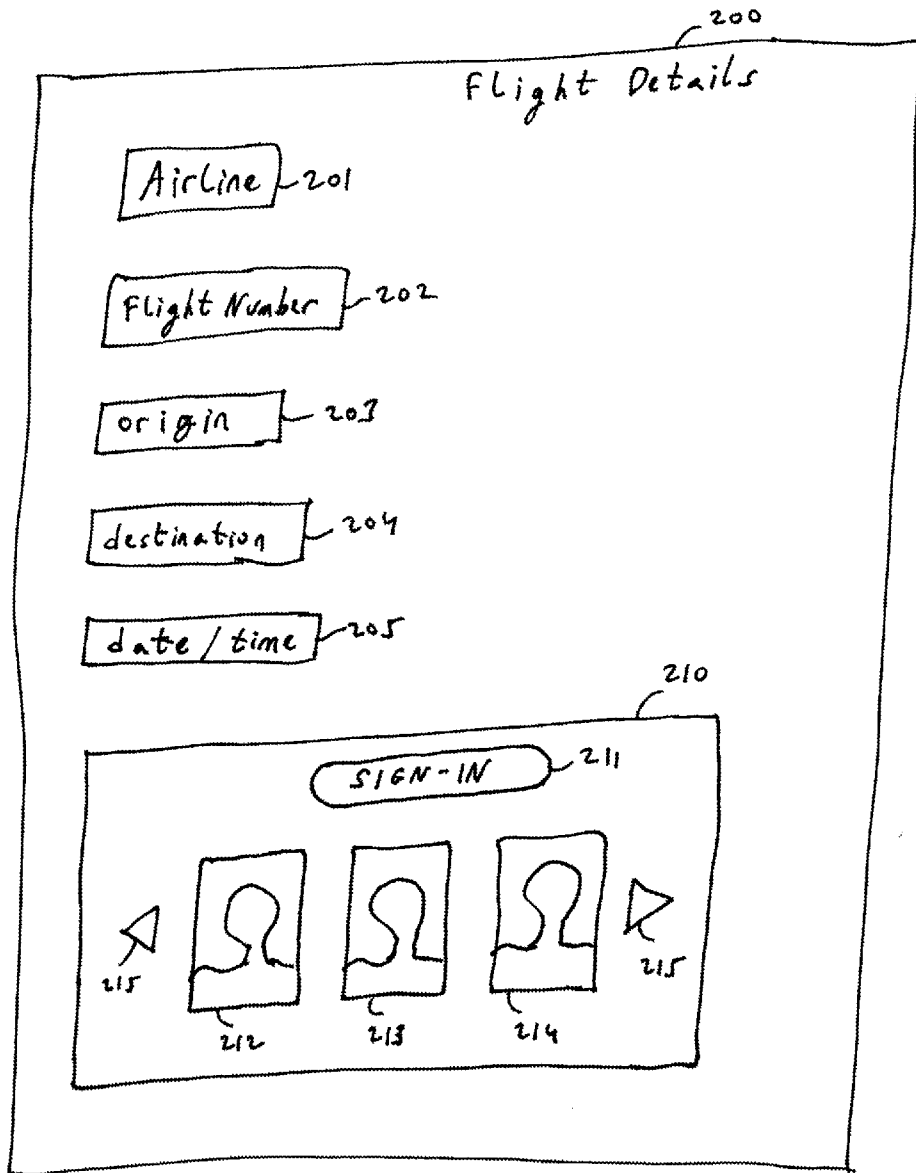 200
Flight Details
Airline 201
Flight Number 202
origin 203
destination 204
date / time 205
210
SIGN-IN 211
215 215
212 213 214